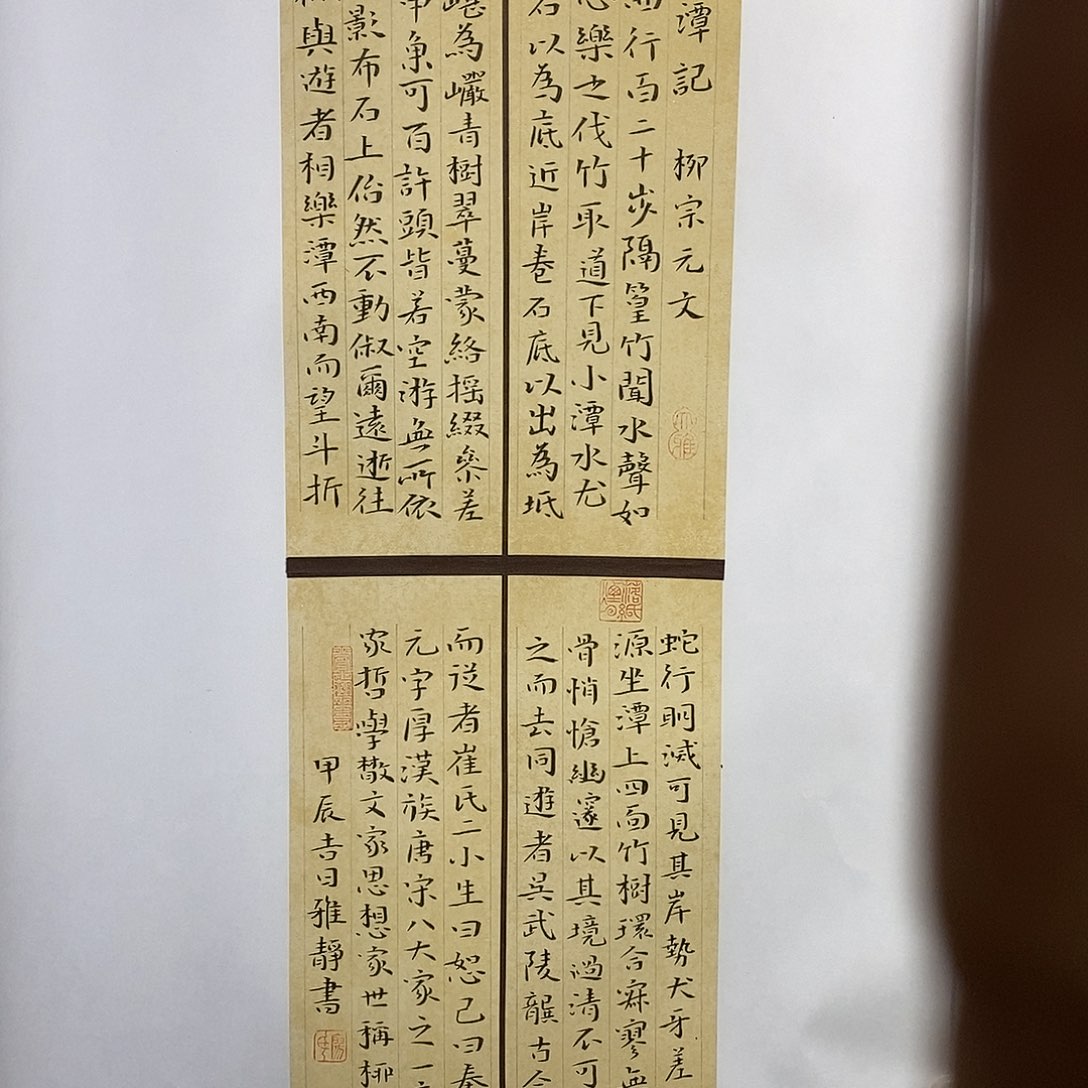 潭記 柳宗元文
西行百二十步隔篁竹聞水聲如
心樂之伐竹取道下見小潭水尤
石以為底近岸卷石底以出為坻
為巖青樹翠蔓蒙絡搖綴參差
中魚可百許頭皆若空游無所依
影布石上佁然不動俶爾遠逝往
與遊者相樂潭西南而望斗折
蛇行明滅可見其岸勢犬牙差
源坐潭上四面竹樹環合寂寥無
骨悄愴幽邃以其境過清不可
之而去同遊者吳武陵龔古
而從者崔氏二小生曰恕己曰奉
元字厚漢族唐宋八大家之一
家哲學散文家思想家世稱柳
甲辰吉日雅靜書